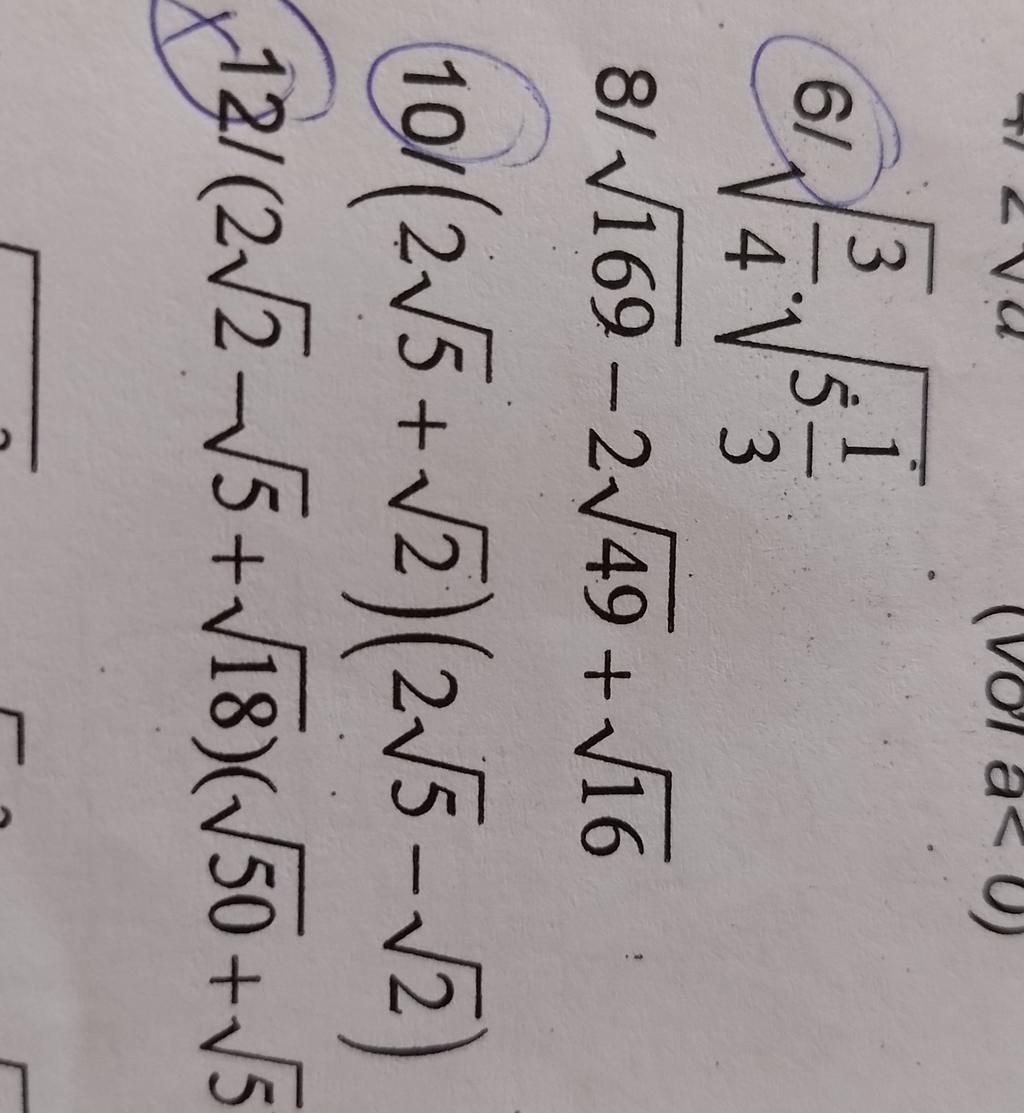 (với a< 0)
6/ √(3/4) . √(5 1/3)
8/ √169 − 2√49 + √16
10/ (2√5 + √2)(2√5 − √2)
12/ (2√2 − √5 + √18)(√50 + √5